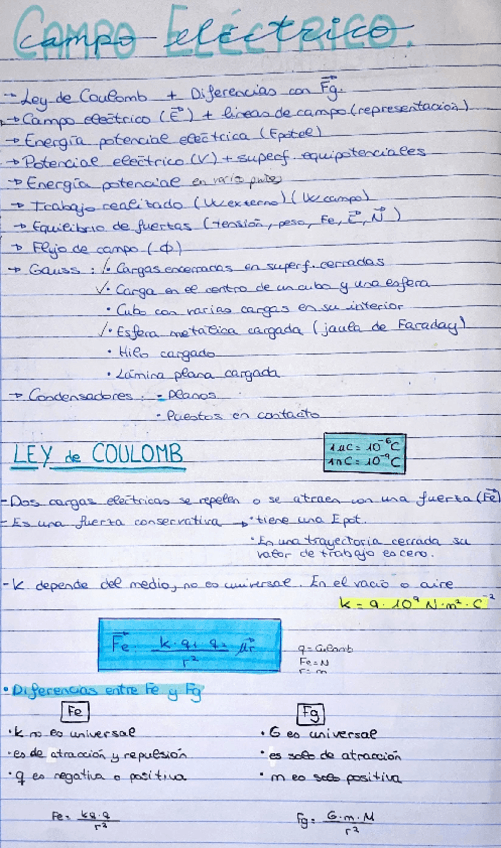 CAMPO ELÉCTRICO.
campo eléctrico
→ Ley de Coulomb + Diferencias con Fg.
→ Campo eléctrico (E) + líneas de campo (representación)
→ Energía potencial eléctrica (Epotel)
→ Potencial eléctrico (V) + superf. equipotenciales
→ Energía potencial en varios puntos
→ Trabajo realizado (Wexterno) (Wcampo)
→ Equilibrio de fuerzas (tensión, peso, Fe, E, N)
→ Flujo de campo (ϕ)
→ Gauss: ✓• Cargas encerradas en superf. cerradas
✓• Carga en el centro de un cubo y una esfera
• Cubo con varias cargas en su interior
✓• Esfera metálica cargada (jaula de Faraday)
• Hilo cargado
• Lámina plana cargada
→ Condensadores: - Planos
- Puestos en contacto
LEY de COULOMB
1 μC = 10⁻⁶ C
1 nC = 10⁻⁹ C
- Dos cargas eléctricas se repelen o se atraen con una fuerza (Fe)
- Es una fuerza conservativa → • tiene una Epot.
• En una trayectoria cerrada su
valor de trabajo es cero.
- K depende del medio, no es universal. En el vacío o aire
K = 9 · 10⁹ N·m²·C⁻²
Fe = K · q₁ · q₂ / r² μr
q = Coulomb
Fe = N
r = m
• Diferencias entre Fe y Fg
Fe Fg
• K no es universal • G es universal
• es de atracción y repulsión • es solo de atracción
• q es negativa o positiva • m es solo positiva
Fe = KQ·q / r² Fg = G·m·M / r²